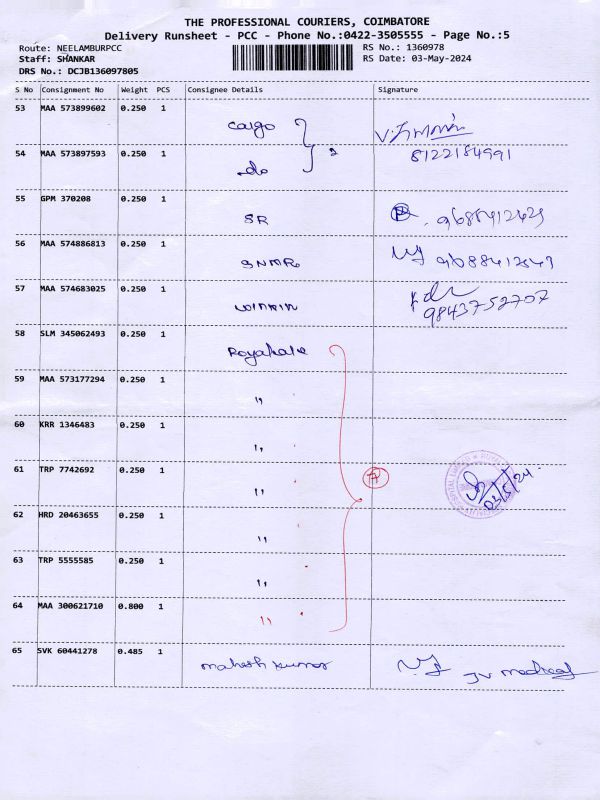 THE PROFESSIONAL COURIERS, COIMBATORE
Delivery Runsheet - PCC - Phone No.:0422-3505555 - Page No.:5
Route: NEELAMBURPCC
RS No.: 1360978
Staff: SHANKAR
RS Date: 03-May-2024
DRS No.: DCJB136097805
S No Consignment No Weight PCS Consignee Details Signature
53 MAA 573899602 0.250 1 cargo
54 MAA 573897593 0.250 1 do 2 8122184991
55 GPM 370208 0.250 1 SR
56 MAA 574886813 0.250 1
57 MAA 574683025 0.250 1 9843752707
58 SLM 345062493 0.250 1
59 MAA 573177294 0.250 1 ,,
60 KRR 1346483 0.250 1 ,,
61 TRP 7742692 0.250 1 ,, 7
03/5/24
62 HRD 20463655 0.250 1 ,,
63 TRP 5555585 0.250 1 ,,
64 MAA 300621710 0.800 1 ,,
65 SVK 60441278 0.485 1 mahesh kumar JV medical